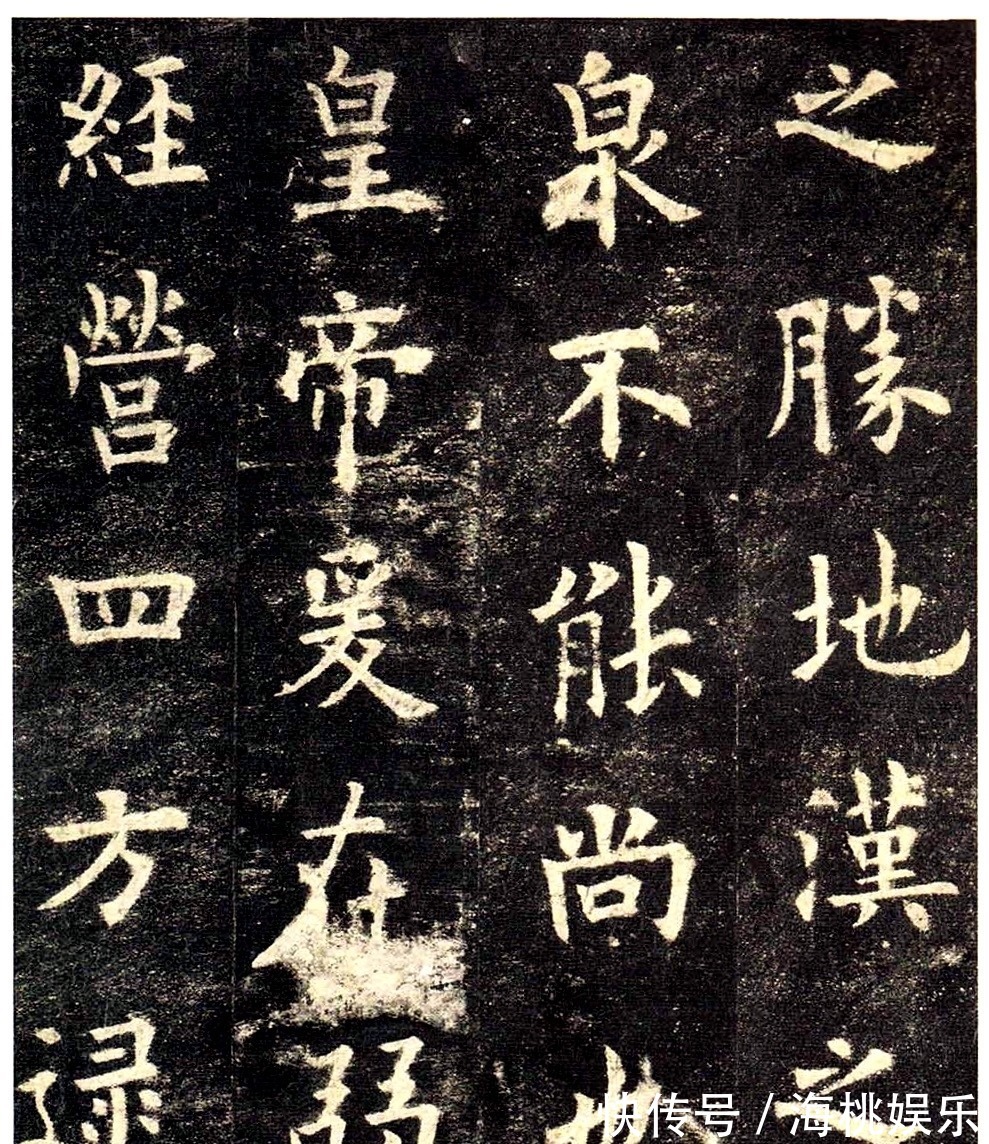 之勝地漢之
泉不能尚也
皇帝爰在弱
經營四方逮
快传号 / 海桃娱乐